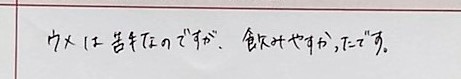 ウメは苦手なのですが、飲みやすかったです。